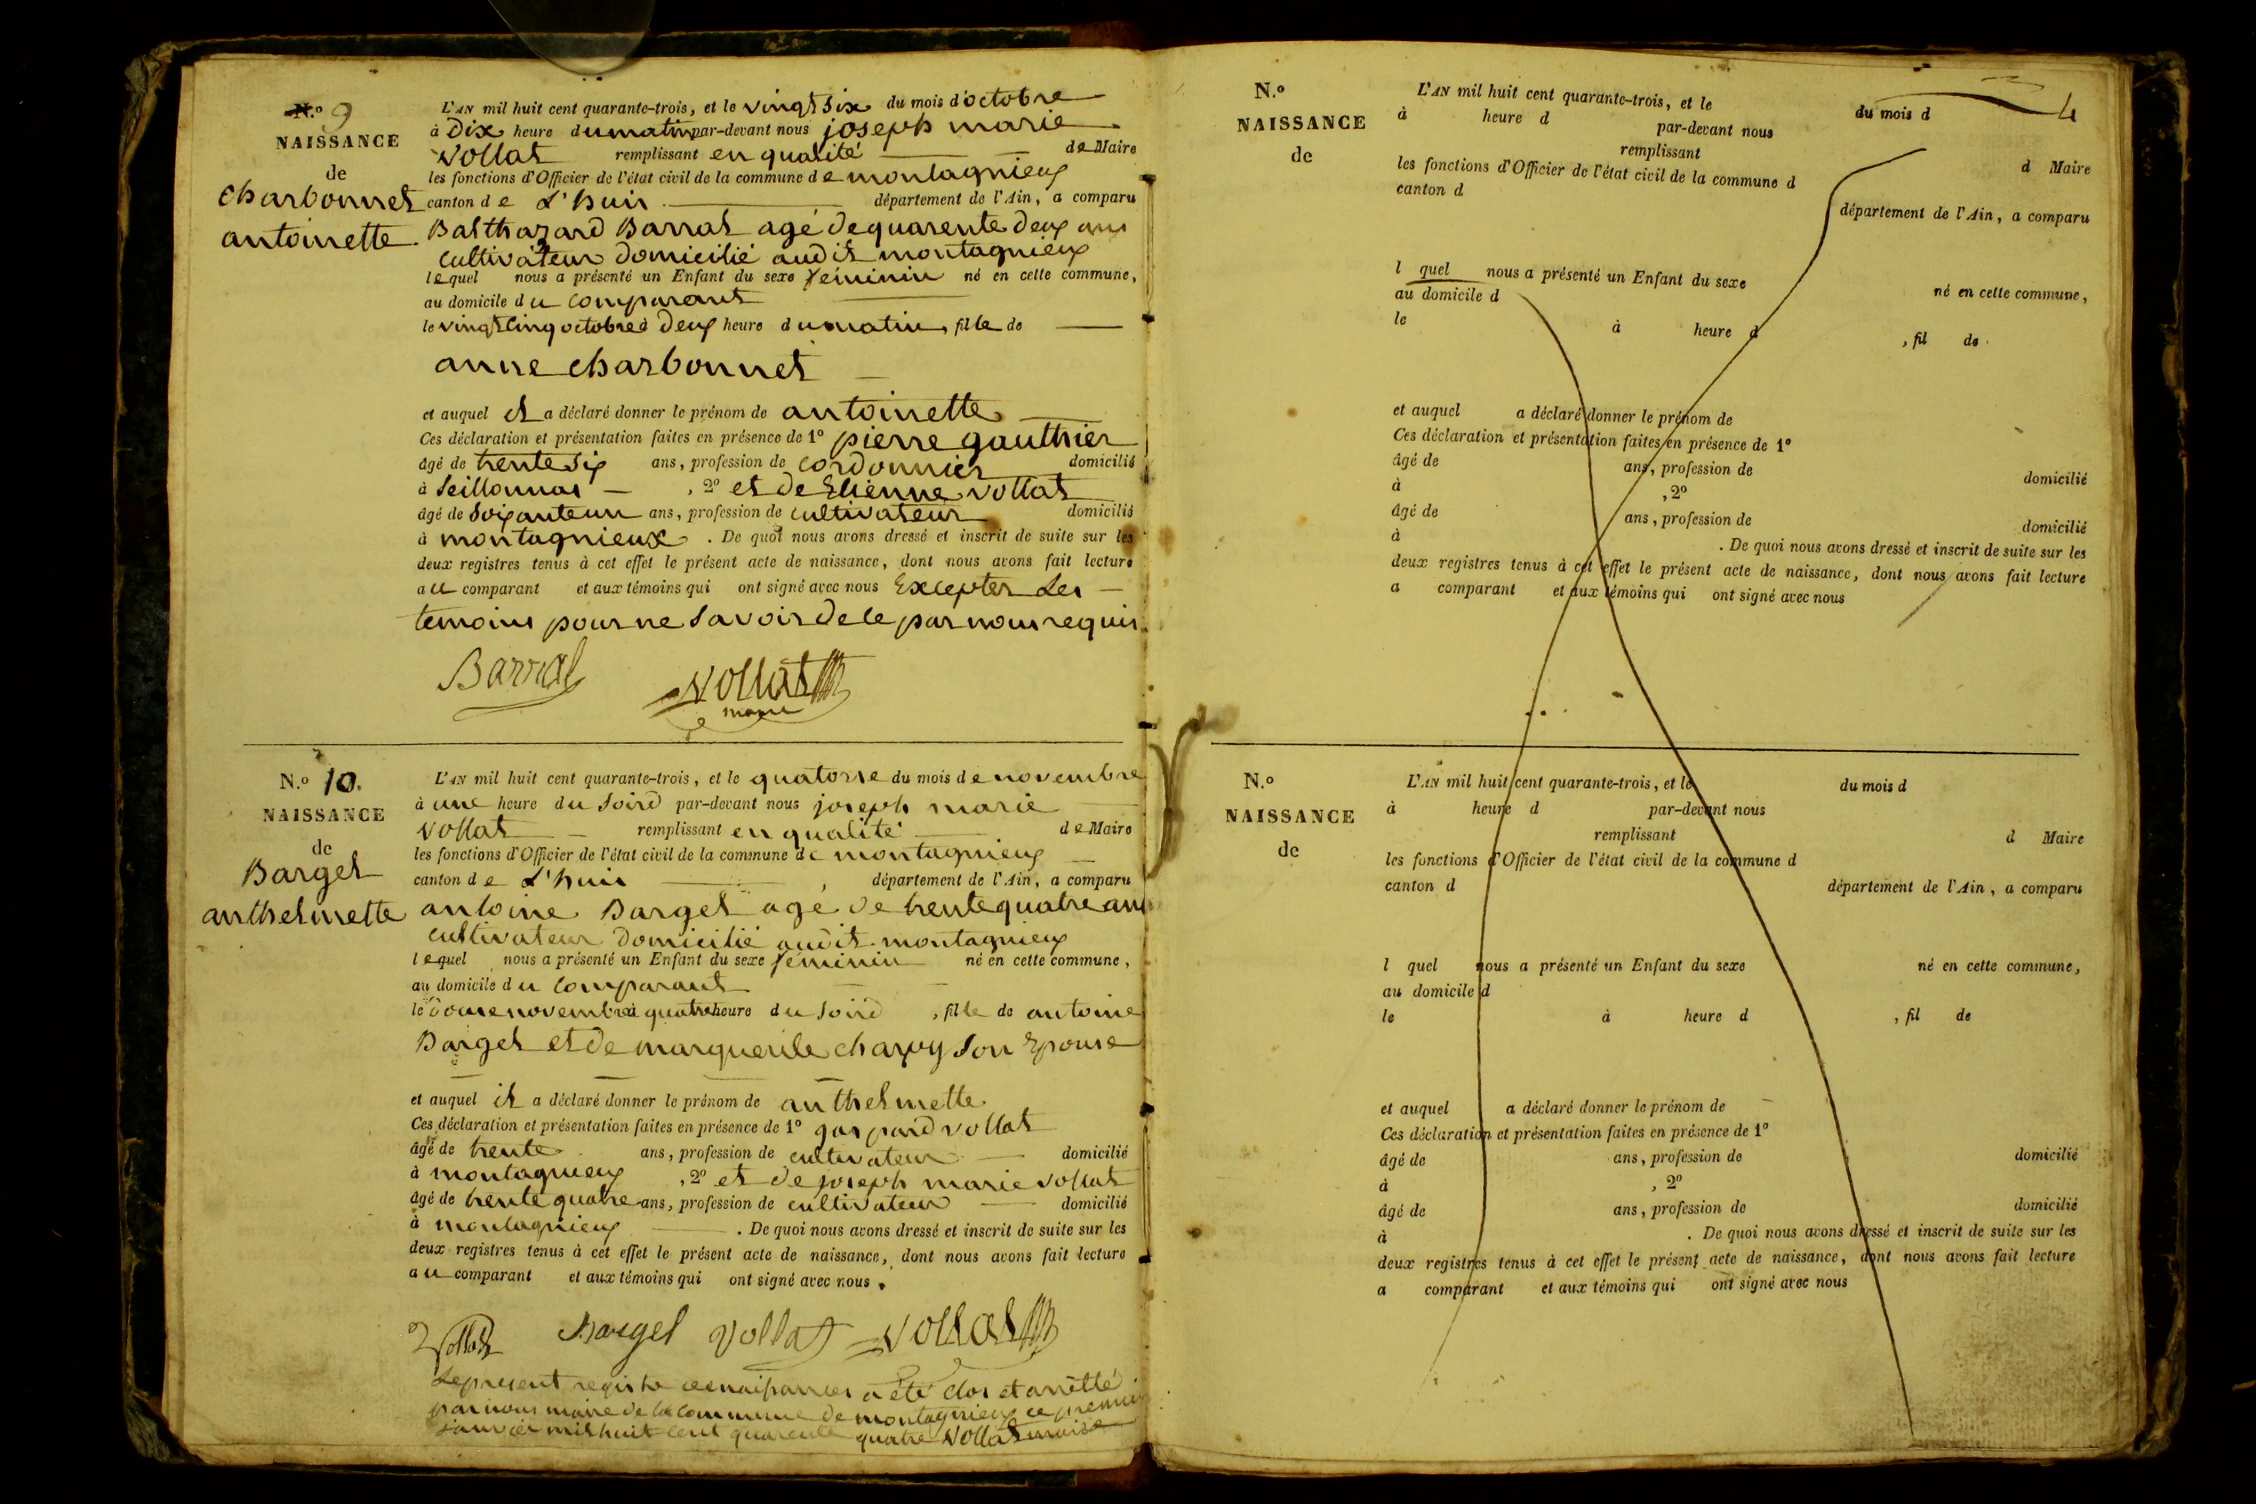 N.º 9
NAISSANCE
de
Charbonnet
antoinette
L'AN mil huit cent quarante-trois, et le vingt six du mois d'octobre
à Dix heure du matin par-devant nous joseph marie
Vollat remplissant en qualité de Maire
les fonctions d'Officier de l'état civil de la commune de montagnieux
canton de L'huis département de l'Ain, a comparu
Balthazard Barral agé de quarente deux ans
cultivateur domicilié audit montagnieux
lequel nous a présenté un Enfant du sexe féminin né en cette commune,
au domicile du comparant
le vingt cinq octobre à deux heure du matin, fille de
anne charbonnet
et auquel il a déclaré donner le prénom de antoinette
Ces déclaration et présentation faites en présence de 1º pierre gauthier
âgé de trente six ans, profession de cordonnier domicilié
à Seillonnas, 2º et de Etienne vollat
âgé de Soixante un ans, profession de cultivateur domicilié
à montagnieux. De quoi nous avons dressé et inscrit de suite sur les
deux registres tenus à cet effet le présent acte de naissance, dont nous avons fait lecture
au comparant et aux témoins qui ont signé avec nous Excepter Les
temoins pour ne Savoir de ce par nous requis.
Barral Vollat
maire
N.º 10.
NAISSANCE
de
Barget
anthelmette
L'AN mil huit cent quarante-trois, et le quatorse du mois de novembre
à une heure du Soird par-devant nous joseph marie
Vollat remplissant en qualité de Maire
les fonctions d'Officier de l'état civil de la commune de montagnieux
canton de L'huis, département de l'Ain, a comparu
antoine Barget agé de trente quatre ans
cultivateur domicilié audit montagnieux
lequel nous a présenté un Enfant du sexe féminin né en cette commune,
au domicile du comparant
le douse novembre à quatre heure du Soird, fille de antoine
Barget et de marguerite charvy Son Epouse
et auquel il a déclaré donner le prénom de anthelmette
Ces déclaration et présentation faites en présence de 1º gaspard vollat
âgé de trente ans, profession de cultivateur domicilié
à montagnieux, 2º et de joseph marie vollat
âgé de trente quatre ans, profession de cultivateur domicilié
à montagnieux. De quoi nous avons dressé et inscrit de suite sur les
deux registres tenus à cet effet le présent acte de naissance, dont nous avons fait lecture
au comparant et aux témoins qui ont signé avec nous.
Vollat Barget Vollat Vollat
Le present registre de naissances a été clos et arrêtté
par nous maire de la commune de montagnieux ce premier
janvier mil huit cent quarente quatre Vollat maire
4
N.º
NAISSANCE
de
L'AN mil huit cent quarante-trois, et le du mois d
à heure d par-devant nous
remplissant d Maire
les fonctions d'Officier de l'état civil de la commune d
canton d département de l'Ain, a comparu
l quel nous a présenté un Enfant du sexe né en cette commune,
au domicile d
le à heure d, fil de
et auquel a déclaré donner le prénom de
Ces déclaration et présentation faites en présence de 1º
âgé de ans, profession de domicilié
à, 2º
âgé de ans, profession de domicilié
à. De quoi nous avons dressé et inscrit de suite sur les
deux registres tenus à cet effet le présent acte de naissance, dont nous avons fait lecture
a comparant et aux témoins qui ont signé avec nous
N.º
NAISSANCE
de
L'AN mil huit cent quarante-trois, et le du mois d
à heure d par-devant nous
remplissant d Maire
les fonctions d'Officier de l'état civil de la commune d
canton d département de l'Ain, a comparu
l quel nous a présenté un Enfant du sexe né en cette commune,
au domicile d
le à heure d, fil de
et auquel a déclaré donner le prénom de
Ces déclaration et présentation faites en présence de 1º
âgé de ans, profession de domicilié
à, 2º
âgé de ans, profession de domicilié
à. De quoi nous avons dressé et inscrit de suite sur les
deux registres tenus à cet effet le présent acte de naissance, dont nous avons fait lecture
a comparant et aux témoins qui ont signé avec nous